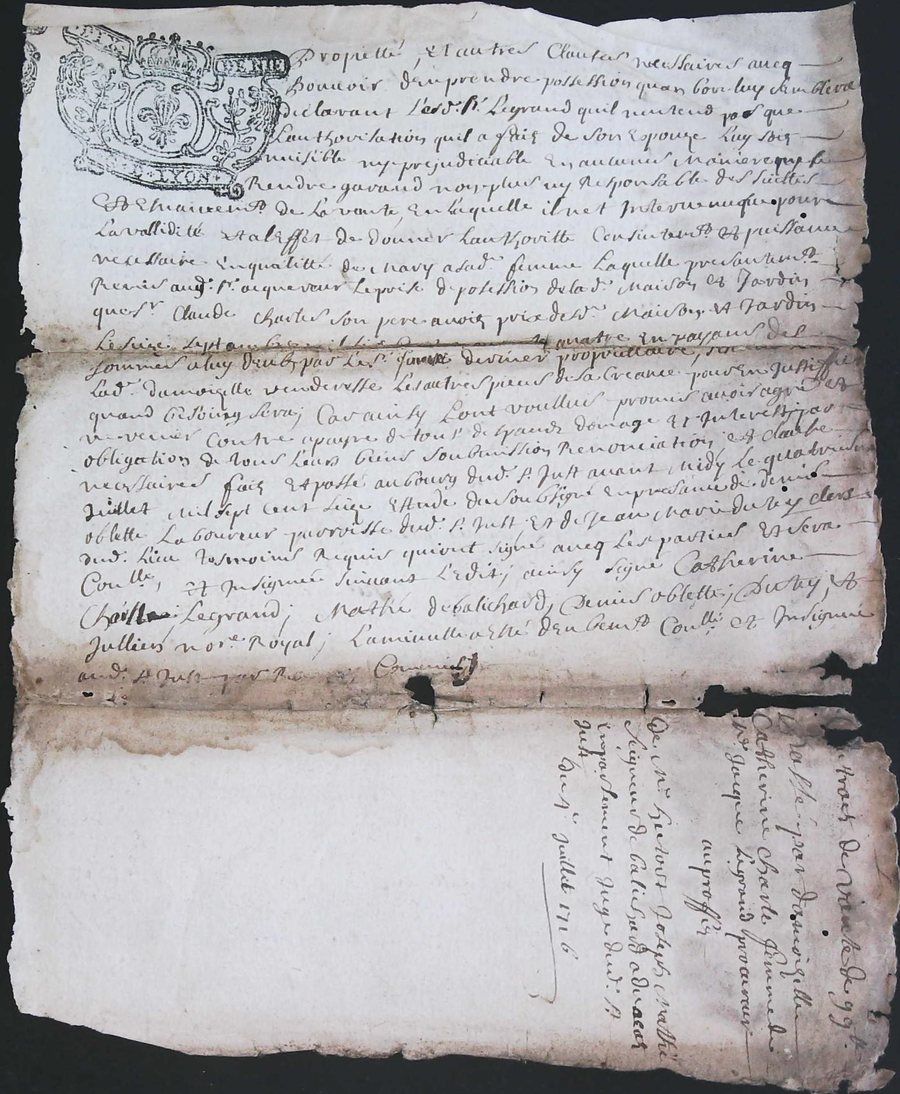 DENIE
LYON
Propietté, Et autres Clauses necessaires avecq
Pouvoir d'En prendre possession quan bon luy semblera
declarant Led. Sr. Legrand quil nentend pas que
Lauthorisation quil a de Son Epouze Luy soit
nuisible ny prejudiciable En aucune Maniere
Rendre garand non plus ny Responsable des suittes
de La vante, En Laquelle il nest Intervenu que pour
La vallidité Et a l'effet de donner Lauthorité Consentemt. Et puissance
necessaire En quallitté de Mary a sad. femme Laquelle presantemt.
Remis aud. Sr. acquereur Le prise de possession de lad. Maison Et Jardin
que Sr. Claude Charles son pere avoit prix desd. Maison Et Jardin
Le seize septambre mil quatre En payant des
sommes a luy deub par Les dernier proprietaire,
Lad. damoizelle venderesse Les autres pieces de sa Creance pour En Justiffier
quand besoing sera; Car ainsy Lont voullus promis avoir agreé Et
ne venir Contre a payne de tous depands domage Et Interest, par
obligation de tous Leurs biens soubmission Renonciation Et Clause
necessaires fait Et passé au bourg dud. St. Just avant Midy Le quatrieme
Juillet Mil sept Cent seize Estude du soubsigné En presance de Denis
oblette Laboureur parroisse dud. St. Just Et de Jean Marie Dutey clerc
dud. Lieu tesmoins Requis qui ont signé avecq Les parties Et sera
Coullé, Et Insignué suivant L'edit; ainsy signé Catherine
Charlle; Legrand; Mathé de balichard, Denis oblette, Dutey, Et
Jullien nore. Royal; La minutte a Esté Coullé Et Insignué
aud. St. Just par
Extrait de Vante de 99 lt.
passé par damoizelle
Catherine Charle femme de
Me. Jacque Legrand procureur
au proffit
De Mr. hector Joseph Mathé
Seigneur de balichard advocat
En parlement Juge dud. St.
Just
Du 4e. Juillet 1716